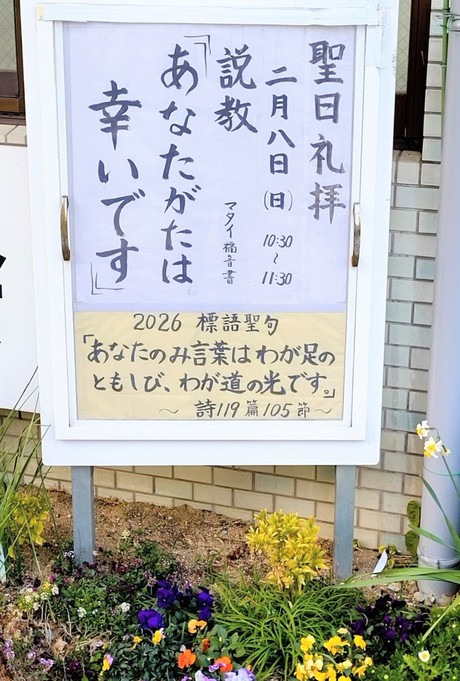 聖日礼拝
二月八日(日) 10:30~11:30
説教 マタイ福音書
「あなたがたは
幸いです」
2026 標語聖句
「あなたのみ言葉はわが足の
ともしび、わが道の光です。」
~ 詩119篇105節~